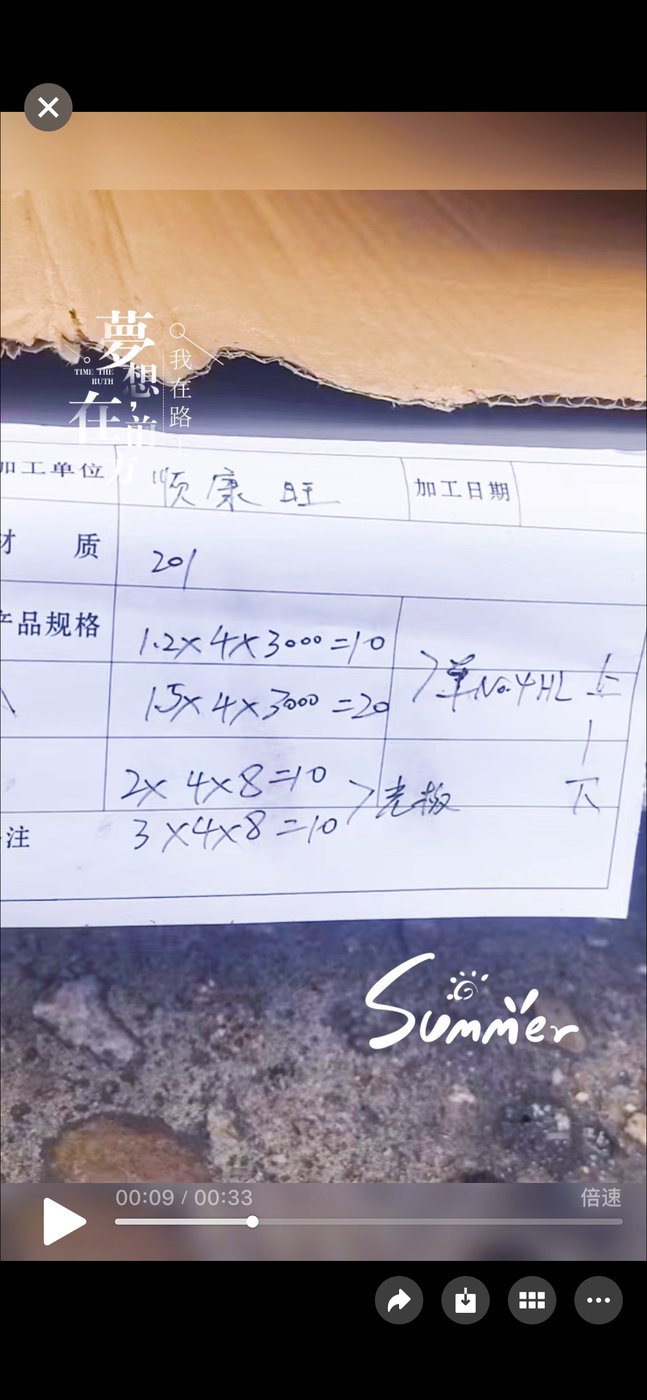 夢想，
在前方
TIME THE
RUTH
我在路上
加工单位 顺康旺 加工日期
材 质 201
产品规格 1.2×4×3000=10
1.5×4×3000=20
>单No.4HL 上
|
下
2×4×8=10
3×4×8=10
>光板
注
Summer
00:09 / 00:33 倍速